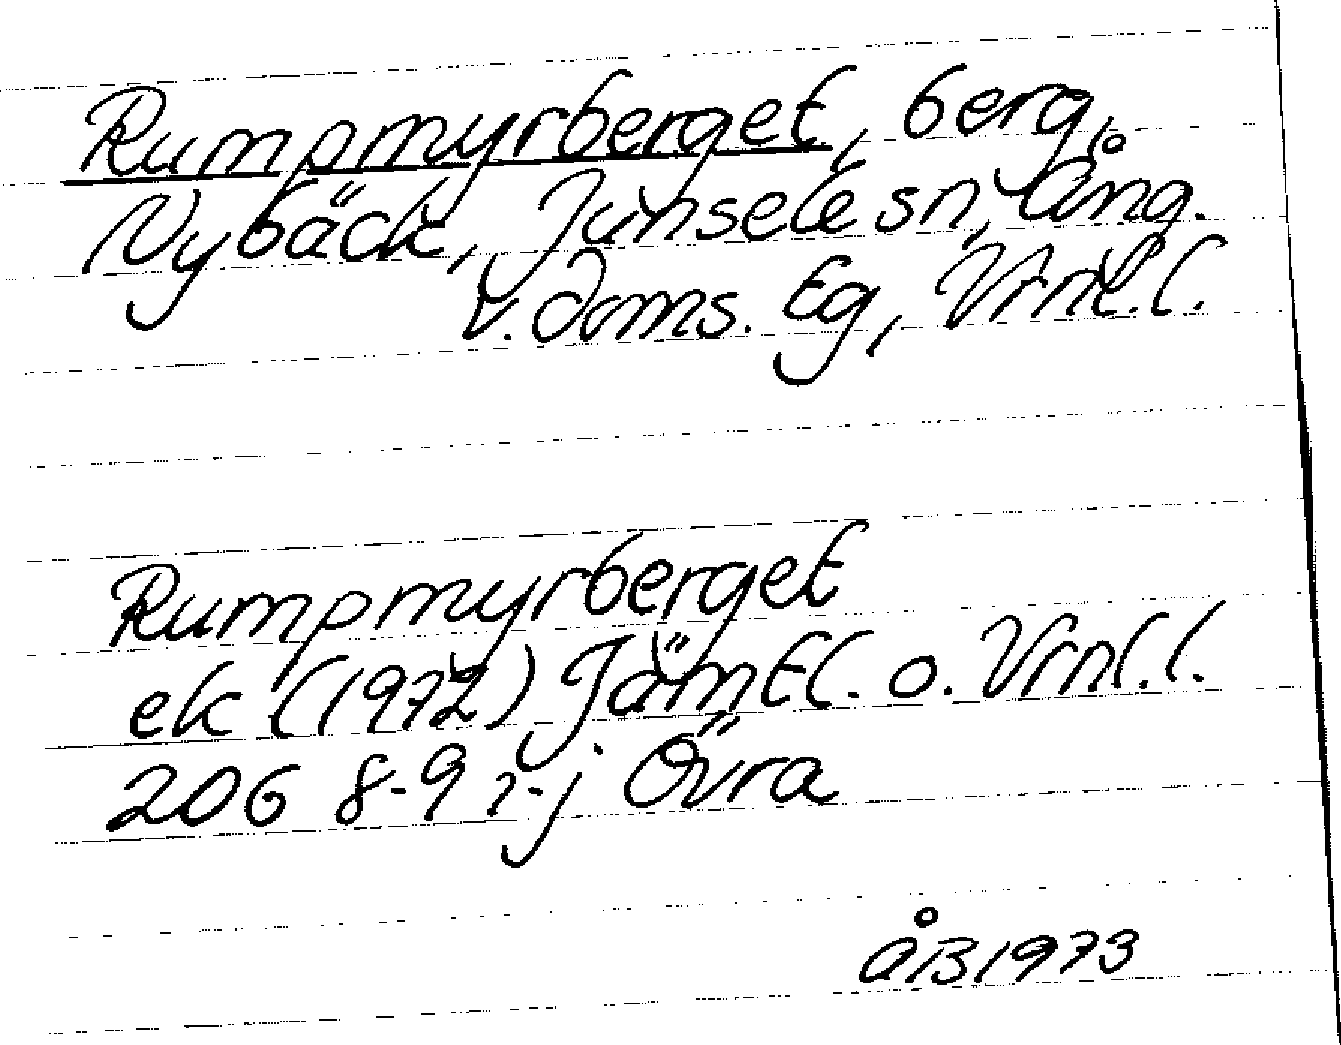 Rumpmyrberget, berg,
Nybäck, Junsele sn, Ång.
v. doms. tg, Vrnl.l.
Rumpmyrberget
ek (1972) Jämtl. o. Vrnl.l.
206 8-9 i-j Övra
ÅB 1973